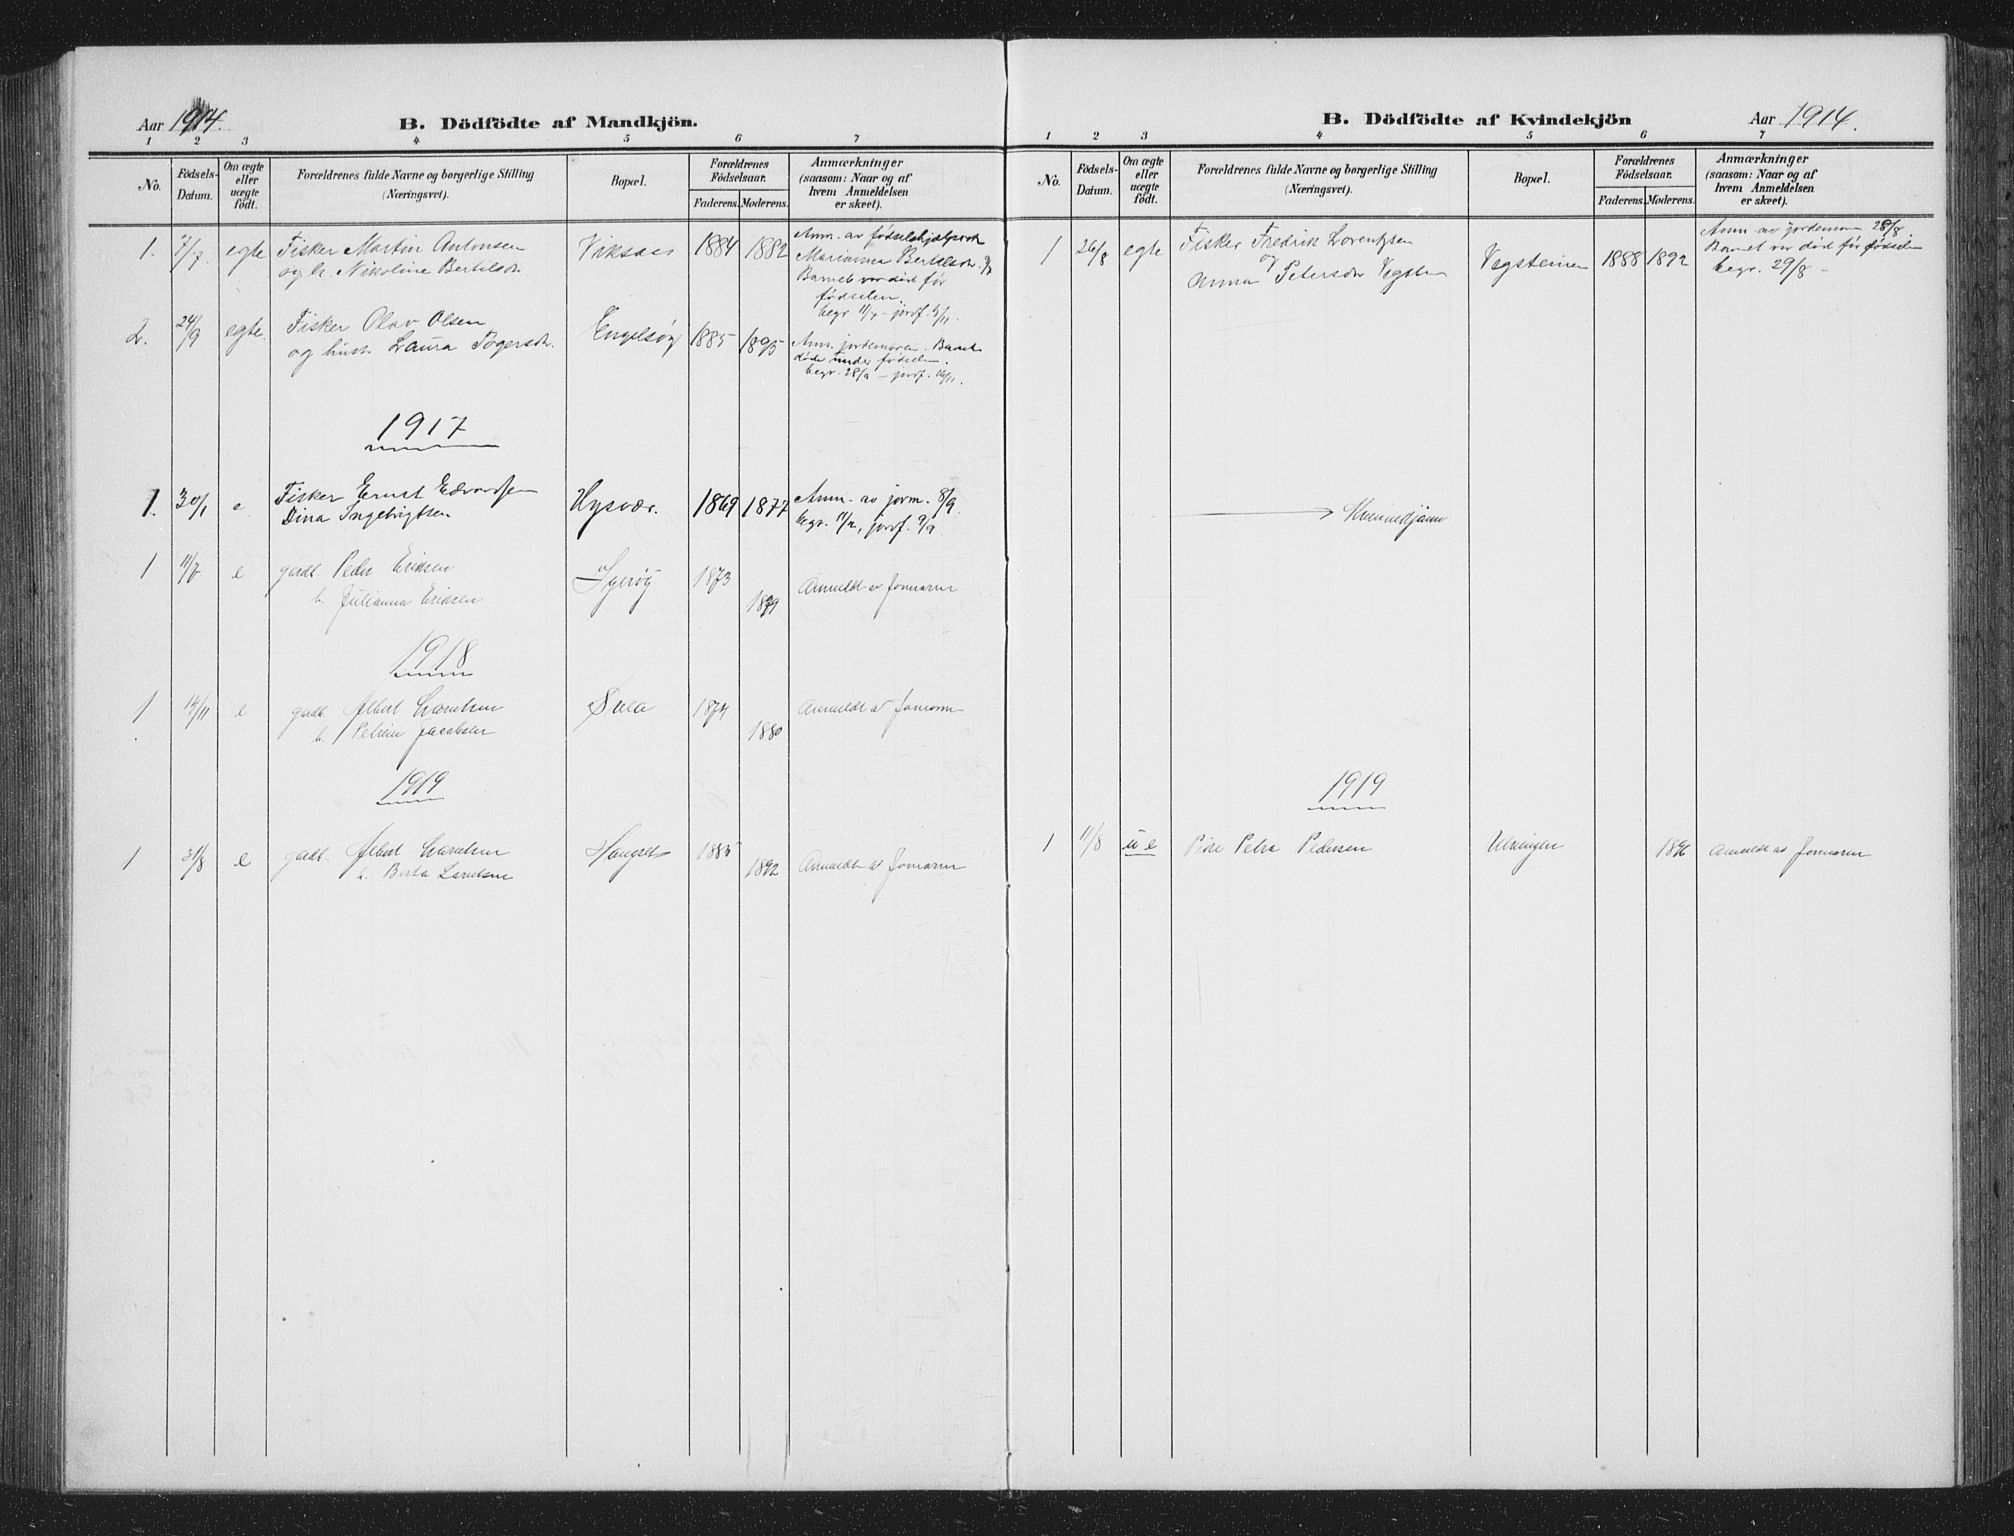 Aar 1914.
B. Dödfödte af Mandkjön.
1 2 3 4 5 6 7
No.
Födsels-
Datum.
Om ægte
eller
uægte
födt.
Forældrenes fulde Navne og borgerlige Stilling
(Næringsvei).
Bopæl.
Forældrenes
Födselsaar.
Faderens. Moderens.
Anmærkninger
(saasom: Naar og af
hvem Anmeldelsen
er skeet).
1. 7/7. egte Fisker Martin Antonsen
og h. Nikoline Bertelsdr
Viksaas 1884 1882
Anm. av fødselshjælpersk
Marianna Bertelsdr. 9/7
Barnet var død før
fødselen.
begr 11/7 – jorf.
2. 24/9 egte. Fisker Olav Olsen
og hust. Laura Togersdr.
Engelsøy 1885 1895
Anm. jordemoren. Barnet
døde under fødselen.
begr. 28/9 – jorf. 16/11.
1917
1. 30/1 e Fisker Ernst Edvardsen
Dina Ingebrigtsen
Hysvær. 1869 1877
Anm. av jorm. 8/9.
begr. 11/2, jorf. 9/9
1 11/7 e gadb. Peder Eriksen
h. Julianna Eriksen
1873
1879
Anmeldt av jormoren
1918
1 14/11 e gadb. Albert
h. Jacobsen
Sula 1874
1880
Anmeldt av jormoren
1919
1 31/8 e gadb. Albert
h. Berta
1885
1892
Anmeldt av jormoren
B. Dödfödte af Kvindekjön
Aar 1914.
1 2 3 4 5 6 7
No.
Födsels-
Datum.
Om ægte
eller
uægte
födt.
Forældrenes fulde Navne og borgerlige Stilling
(Næringsvei).
Bopæl.
Forældrenes
Födselsaar.
Faderens. Moderens.
Anmærkninger
(saasom: Naar og af
hvem Anmeldelsen
er skeet).
1 26/8 egte Fisker Fredrik Lorentzsen
og
Anna Petersdr Vegstein
Vegsteinen 1888 1892
Anm av jordemoren 28/8
Barnet var død før fødselen
begr. 29/8 –
Kvinnekjønn
1919
1 11/8 u e Pike Petra Pedersen
Ulvingen 1896 Anmeldt av jormoren